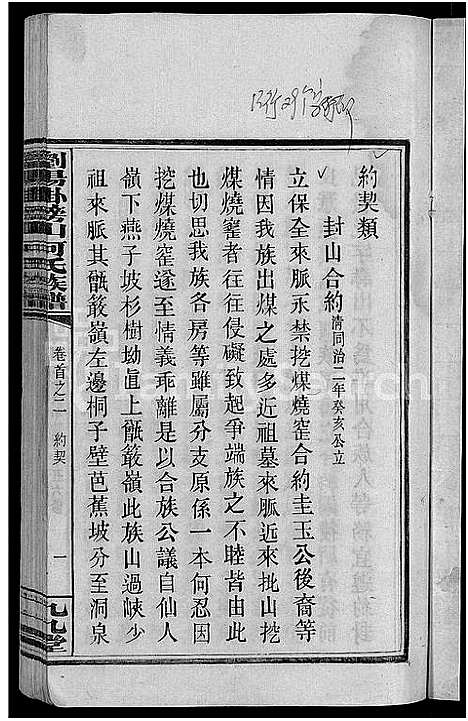 約契類
封山合約 清同治二年癸亥公立
立保全來脈永禁挖煤燒窑合約圭玉公後裔等
情因我族出煤之處多近祖墓來脈近來批山挖
煤燒窑者往往侵礙致起爭端族之不睦皆由此
也切思我族各房等雖屬分支原係一本何忍因
挖煤燒窑遂至情義乖離是以合族公議自仙人
嶺下燕子坡杉樹坳直上甑箃嶺此族山過峽少
祖來脈其甑箃嶺左邊桐子壁芭蕉坡分至洞泉
卷首之二 約契
一
九九堂